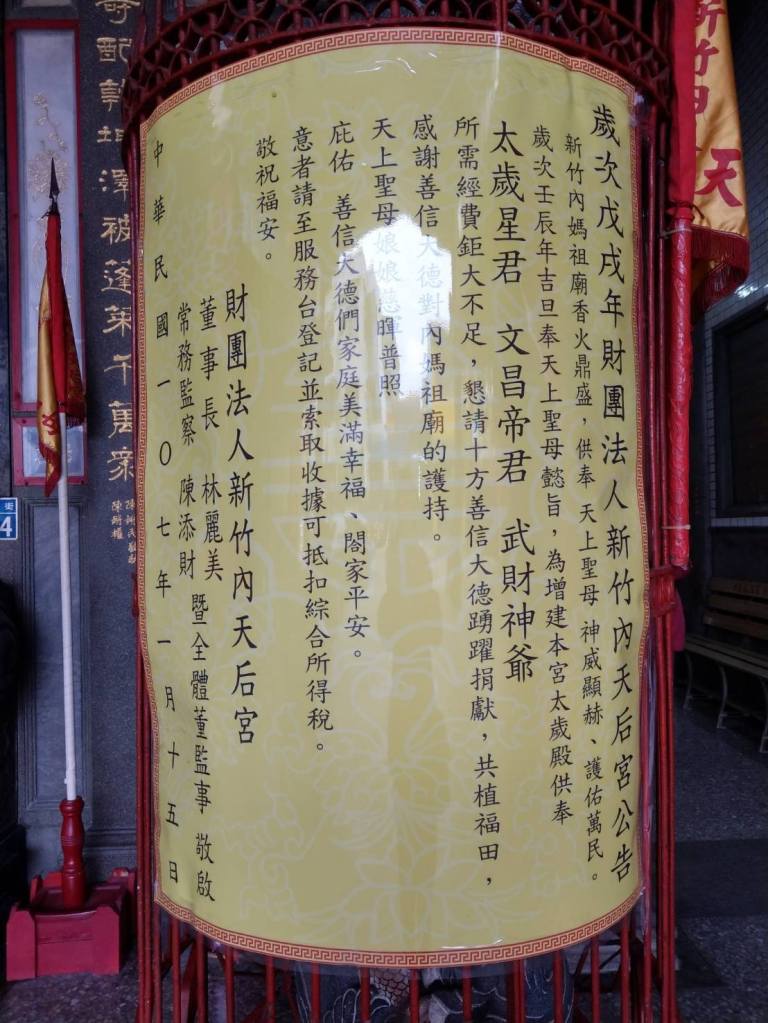 歲次戊戌年財團法人新竹內天后宮公告
新竹內媽祖廟香火鼎盛，供奉 天上聖母 神威顯赫、護佑萬民。
歲次壬辰年吉旦奉天上聖母懿旨，為增建本宮太歲殿供奉
太歲星君 文昌帝君 武財神爺
所需經費鉅大不足，懇請十方善信大德踴躍捐獻，共植福田，
感謝善信大德對內媽祖廟的護持。
天上聖母娘娘慈暉普照
庇佑 善信大德們家庭美滿幸福、閤家平安。
意者請至服務台登記並索取收據可抵扣綜合所得稅。
敬祝福安。
財團法人新竹內天后宮
董事長 林麗美
常務監察 陳添財
暨全體董監事 敬啟
中華民國一〇七年一月十五日
新竹
天
配乾坤澤被蓬萊千萬眾
街
4